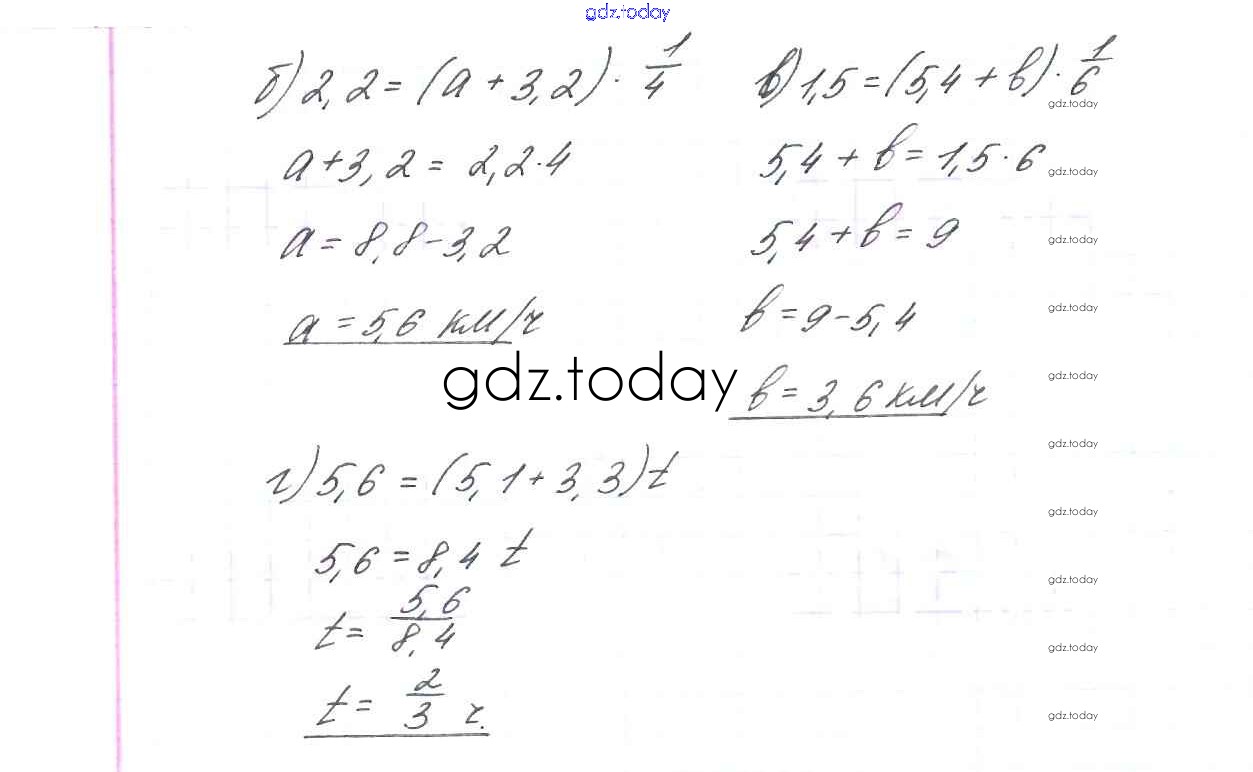 gdz.today
б) 2,2 = (a + 3,2) · 1/4
a + 3,2 = 2,2 · 4
a = 8,8 - 3,2
a = 5,6 км/ч
в) 1,5 = (5,4 + b) · 1/6
5,4 + b = 1,5 · 6
5,4 + b = 9
b = 9 - 5,4
b = 3,6 км/ч
gdz.today
г) 5,6 = (5,1 + 3,3) t
5,6 = 8,4 t
t = 5,6/8,4
t = 2/3 ч.
gdz.today
gdz.today
gdz.today
gdz.today
gdz.today
gdz.today
gdz.today
gdz.today
gdz.today
gdz.today